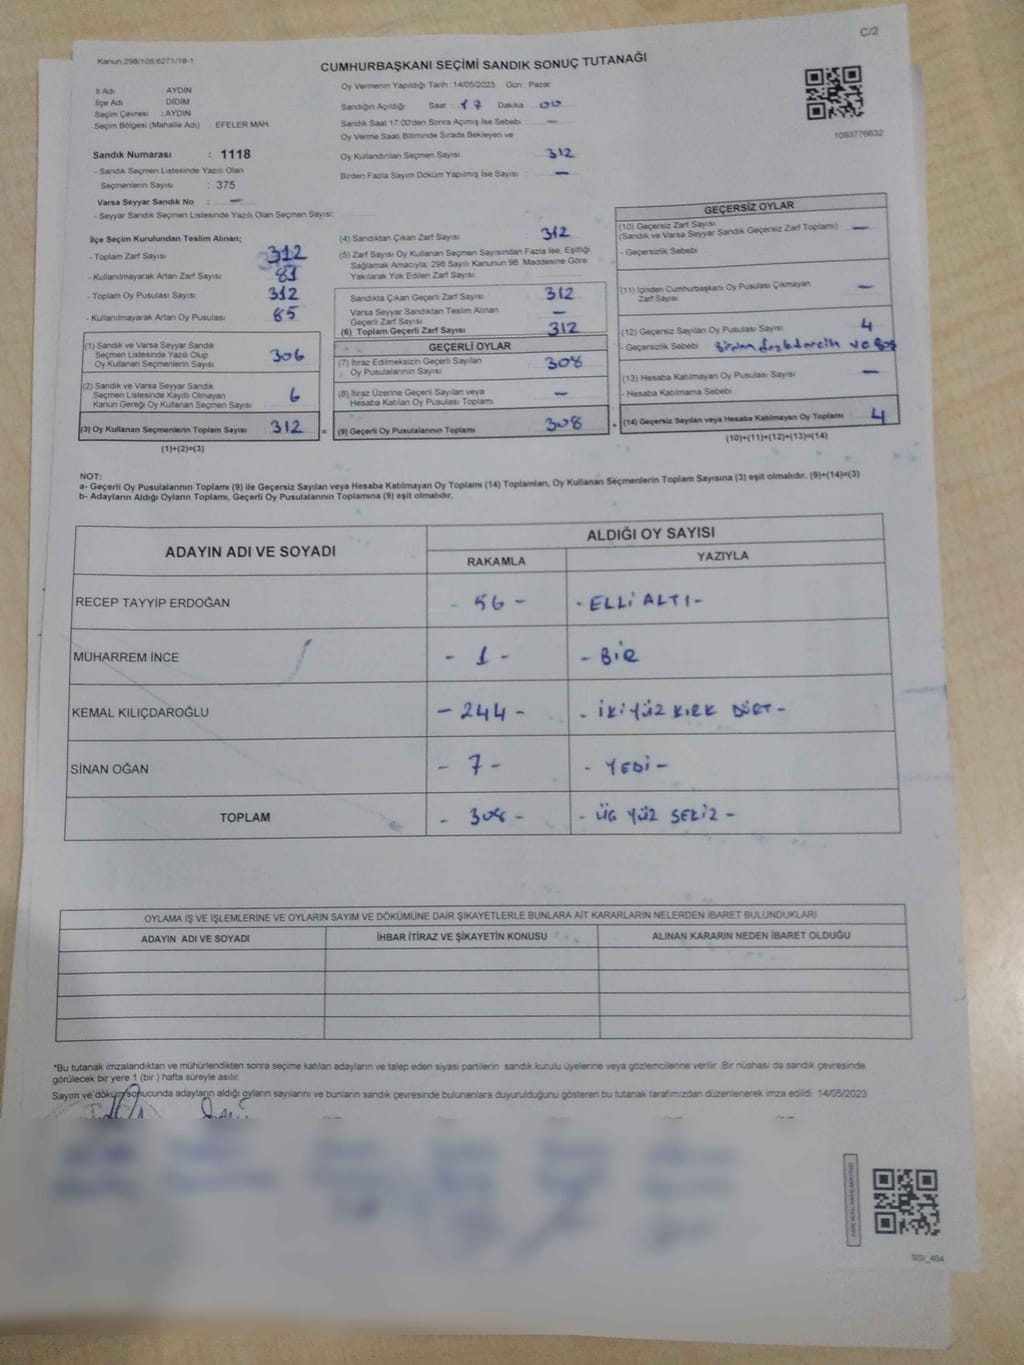 C/2
Kanun.298/105,6271/18-1
CUMHURBAŞKANI SEÇİMİ SANDIK SONUÇ TUTANAĞI
İl Adı AYDIN
İlçe Adı DİDİM
Seçim Çevresi : AYDIN
Seçim Bölgesi (Mahalle Adı) : EFELER MAH.
Oy Vermenin Yapıldığı Tarih : 14/05/2023 Gün : Pazar
Sandığın Açıldığı Saat 17 Dakika 00
Sandık Saat 17:00'den Sonra Açılmış İse Sebebi —
Oy Verme Saati Bitiminde Sırada Bekleyen ve
Oy Kullandırılan Seçmen Sayısı 312
Birden Fazla Sayım Döküm Yapılmış İse Sayısı : —
1093776632
Sandık Numarası : 1118
- Sandık Seçmen Listesinde Yazılı Olan
Seçmenlerin Sayısı : 375
Varsa Seyyar Sandık No : —
- Seyyar Sandık Seçmen Listesinde Yazılı Olan Seçmen Sayısı:
İlçe Seçim Kurulundan Teslim Alınan;
- Toplam Zarf Sayısı 312
- Kullanılmayarak Artan Zarf Sayısı
- Toplam Oy Pusulası Sayısı 312
- Kullanılmayarak Artan Oy Pusulası 85
(1) Sandık ve Varsa Seyyar Sandık
Seçmen Listesinde Yazılı Olup
Oy Kullanan Seçmenlerin Sayısı 306
(2) Sandık ve Varsa Seyyar Sandık
Seçmen Listesinde Kayıtlı Olmayan
Kanun Gereği Oy Kullanan Seçmen Sayısı 6
(3) Oy Kullanan Seçmenlerin Toplam Sayısı 312 =
(1)+(2)=(3)
(4) Sandıktan Çıkan Zarf Sayısı 312
(5) Zarf Sayısı Oy Kullanan Seçmen Sayısından Fazla İse, Eşitliği
Sağlamak Amacıyla; 298 Sayılı Kanunun 98. Maddesine Göre
Yakılarak Yok Edilen Zarf Sayısı
Sandıkta Çıkan Geçerli Zarf Sayısı 312
Varsa Seyyar Sandıktan Teslim Alınan
Geçerli Zarf Sayısı —
(6) Toplam Geçerli Zarf Sayısı 312
GEÇERLİ OYLAR
(7) İtiraz Edilmeksizin Geçerli Sayılan
Oy Pusulalarının Sayısı 308
(8) İtiraz Üzerine Geçerli Sayılan veya
Hesaba Katılan Oy Pusulası Toplamı —
(9) Geçerli Oy Pusulalarının Toplamı 308 +
GEÇERSİZ OYLAR
(10) Geçersiz Zarf Sayısı
(Sandık ve Varsa Seyyar Sandık Geçersiz Zarf Toplamı) —
- Geçersizlik Sebebi
(11) İçinden Cumhurbaşkanı Oy Pusulası Çıkmayan
Zarf Sayısı —
(12) Geçersiz Sayılan Oy Pusulası Sayısı 4
- Geçersizlik Sebebi Birden fazla tercih ve Boş
(13) Hesaba Katılmayan Oy Pusulası Sayısı —
- Hesaba Katılmama Sebebi
(14) Geçersiz Sayılan veya Hesaba Katılmayan Oy Toplamı 4
(10)+(11)+(12)+(13)=(14)
NOT:
a- Geçerli Oy Pusulalarının Toplamı (9) ile Geçersiz Sayılan veya Hesaba Katılmayan Oy Toplamı (14) Toplamları, Oy Kullanan Seçmenlerin Toplam Sayısına (3) eşit olmalıdır. (9)+(14)=(3)
b- Adayların Aldığı Oyların Toplamı, Geçerli Oy Pusulalarının Toplamına (9) eşit olmalıdır.
ADAYIN ADI VE SOYADI ALDIĞI OY SAYISI
RAKAMLA YAZIYLA
RECEP TAYYİP ERDOĞAN - 56 - - ELLİ ALTI -
MUHARREM İNCE - 1 - - BİR
KEMAL KILIÇDAROĞLU - 244 - - İKİ YÜZ KIRK DÖRT -
SİNAN OĞAN - 7 - - YEDİ -
TOPLAM - 308 - - ÜÇ YÜZ SEKİZ -
OYLAMA İŞ VE İŞLEMLERİNE VE OYLARIN SAYIM VE DÖKÜMÜNE DAİR ŞİKAYETLERLE BUNLARA AİT KARARLARIN NELERDEN İBARET BULUNDUKLARI
ADAYIN ADI VE SOYADI İHBAR İTİRAZ VE ŞİKAYETİN KONUSU ALINAN KARARIN NEDEN İBARET OLDUĞU
*Bu tutanak imzalandıktan ve mühürlendikten sonra seçime katılan adayların ve talep eden siyasi partilerin sandık kurulu üyelerine veya gözlemcilerine verilir .Bir nüshası da sandık çevresinde
görülecek bir yere 1 (bir ) hafta süreyle asılır.
Sayım ve döküm sonucunda adayların aldığı oyların sayılarını ve bunların sandık çevresinde bulunanlara duyurulduğunu gösteren bu tutanak tarafımızdan düzenlenerek imza edildi. 14/05/2023
SSI_464